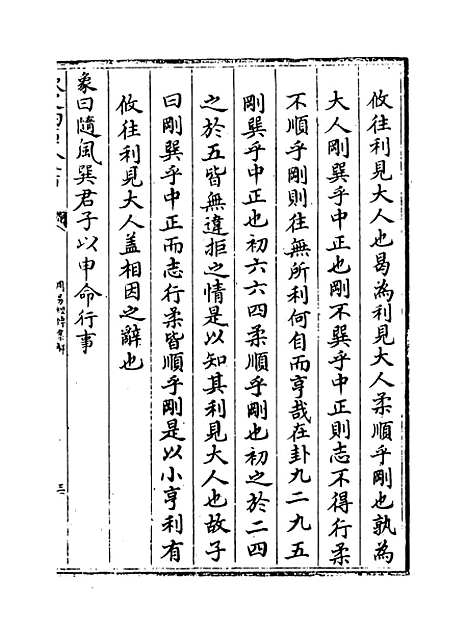 攸往利見大人也曷為利見大人柔順乎剛也孰為
大人剛巽乎中正也剛不巽乎中正則志不得行柔
不順乎剛則往無所利何自而亨哉在卦九二九五
剛巽乎中正也初六六四柔順乎剛也初之於二四
之於五皆無違拒之情是以知其利見大人也故子
曰剛巽乎中正而志行柔皆順乎剛是以小亨利有
攸往利見大人蓋相因之辭也
象曰隨風巽君子以申命行事
三